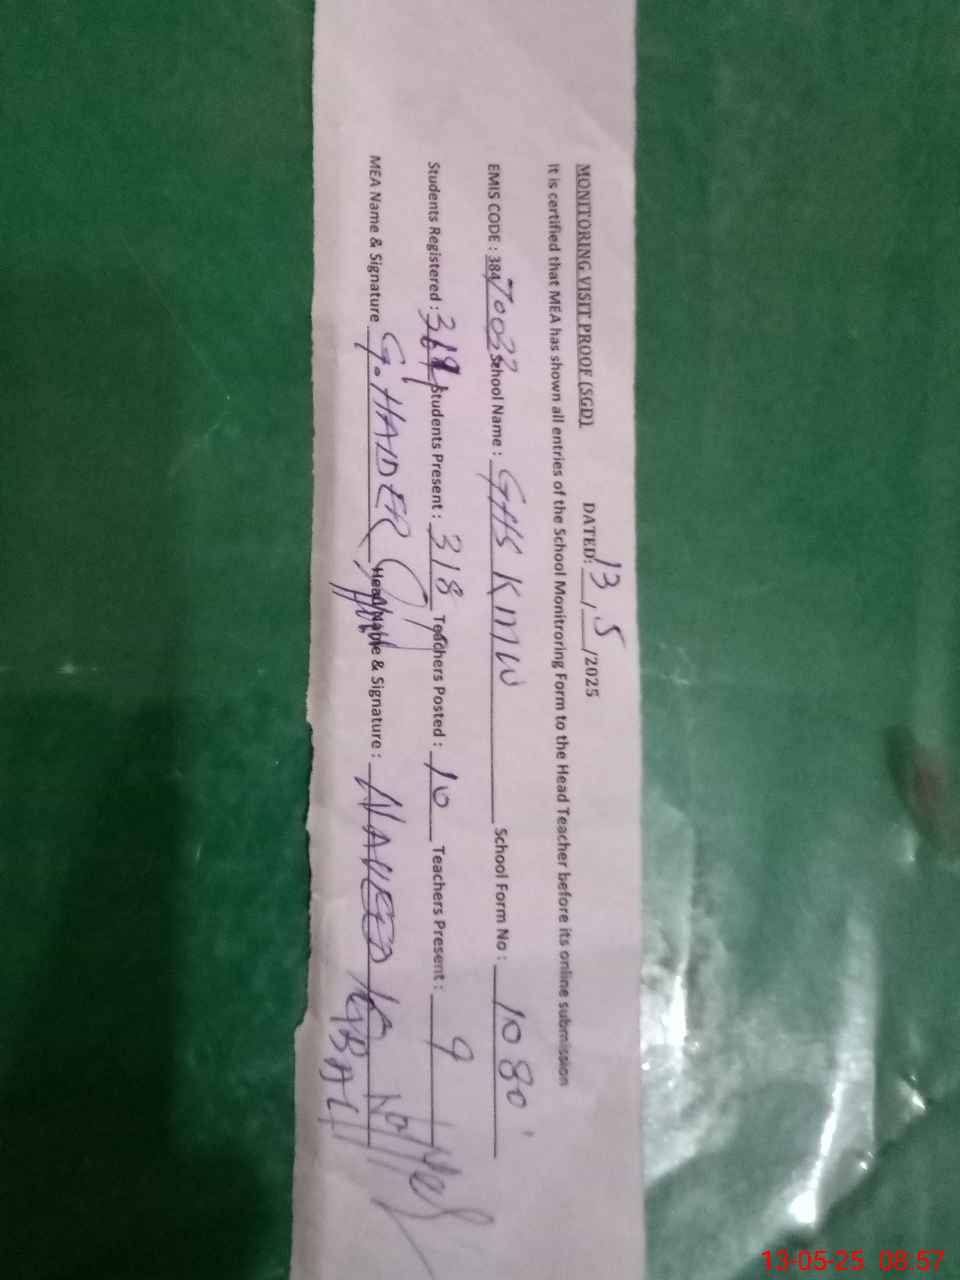 MONITORING VISIT PROOF (SGD) DATED: 13/5/2025
It is certified that MEA has shown all entries of the School Monitroring Form to the Head Teacher before its online submission
EMIS CODE : 38470032 School Name : GHS KMW School Form No : 1080
Students Registered : Students Present : 318 Teachers Posted : 10 Teachers Present : 9
MEA Name & Signature G. HAIDER Head Name & Signature : NAVEED IQBAL
13-05-25 08:57